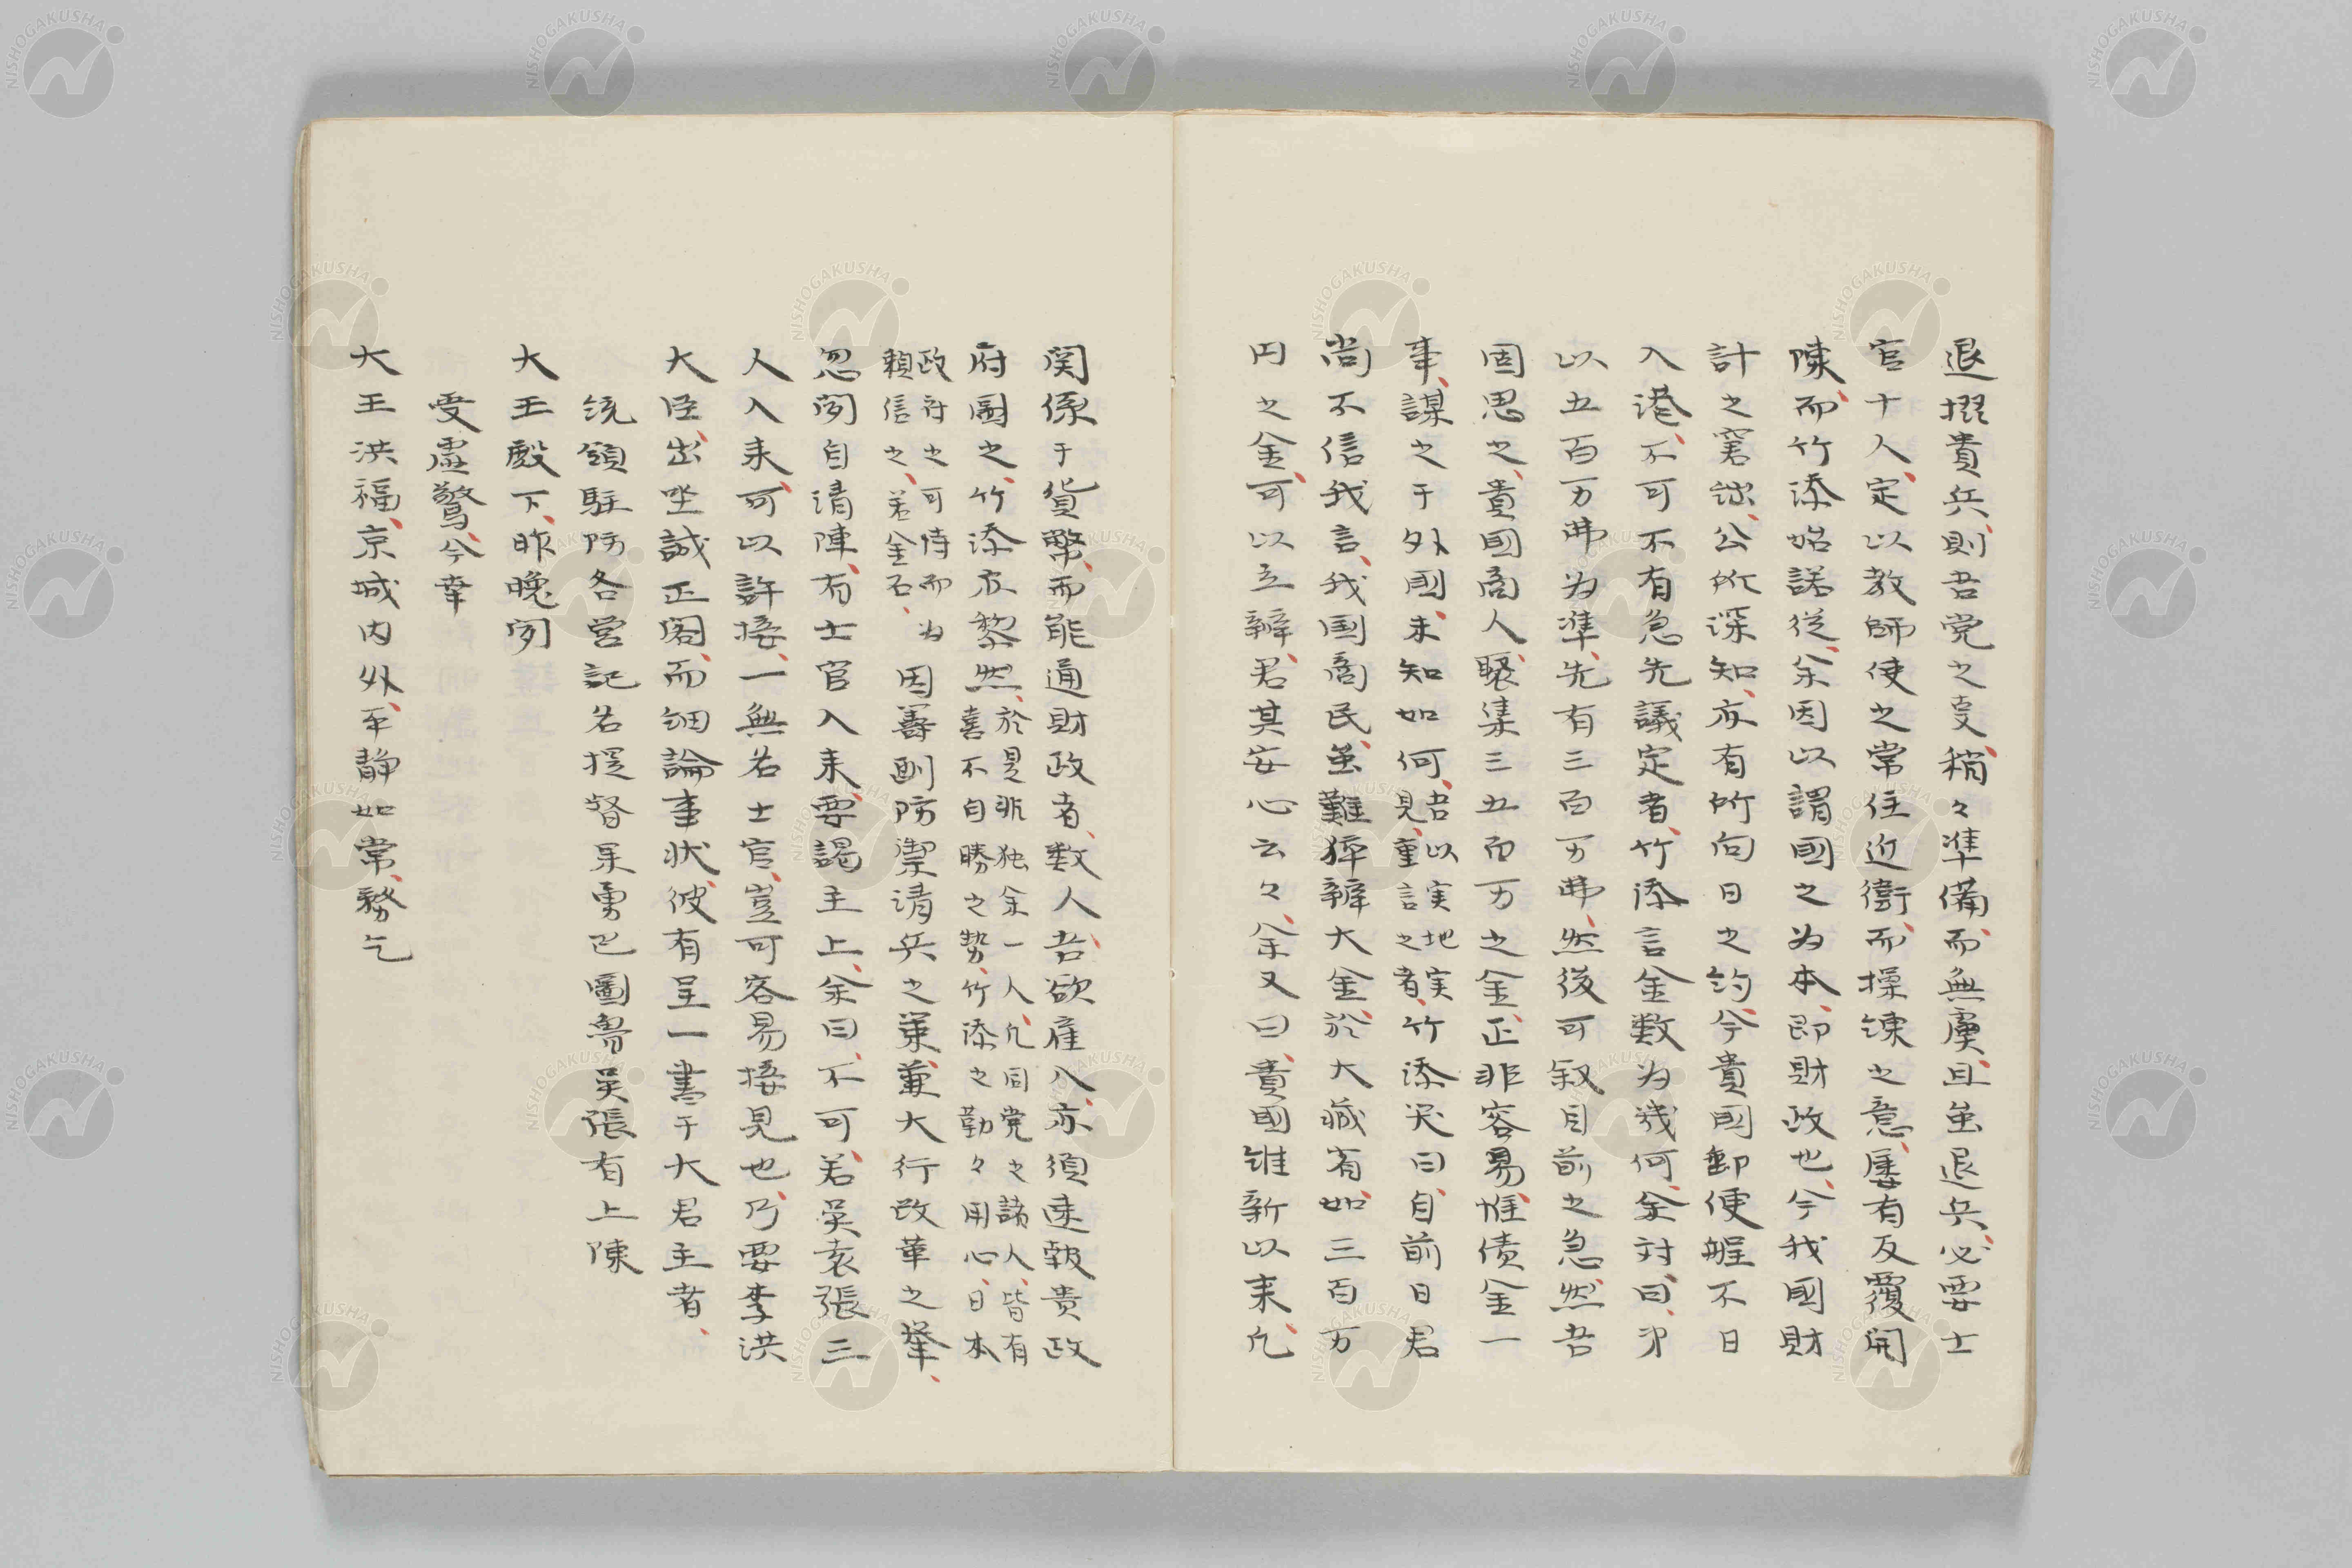 退掇貴兵、則吾党之支、稍々準備、而無虞、且虽退兵、必要士
官十人、定以教師使之常住近衛、而操鍊之意、屡有反覆開
陳、而竹添始諾從、余因以謂國之為本、即財政也、今我國財
計之窘絀、公所深知、亦有所向日之約、今貴國郵便艇不日
入港、不可不有急先議定者、竹添言金数為幾何、余対曰、少
以五百万弗為準、先有三百万弗、然後可叙目前之急、然吾
固思之、貴國商人、聚集三五百万之金、正非容易、惟债金一
事、謀之于外國、未知如何、吾以実地実見、重言之者、竹添笑曰、自前日君
尚不信我言、我国商民、虽難猝辦大金、於大蔵省、如三百万
円之金、可以立辦、君其安心云々、余又曰、貴國維新以来、凢
関係于貨幣、而能通財政者、数人吾欲雇入、亦須速報貴政
府圖之、竹添亦黎然、於是非独余一人、凢同党之諸人、皆有喜不自勝之勢、竹添之勤々用心、日本
政府之可恃而為頼信之、若金石、因籌劃防禦請兵之策、兼大行改革之擧、
忽閽自清陣、有士官入来、要謁主上、余曰、不可、若吳袁張三
人入来、可以許接、一無名士官、豈可容易接見也、乃要李洪
大臣、出坐誠正閣、而細論事状、彼有呈一書于大君主者、
統領駐防各営記名提督杲勇巴圖魯吳張有上陳
大王殿下、昨晩閽
受虚驚、今幸
大王洪福、京城内外、平静如常、務乞